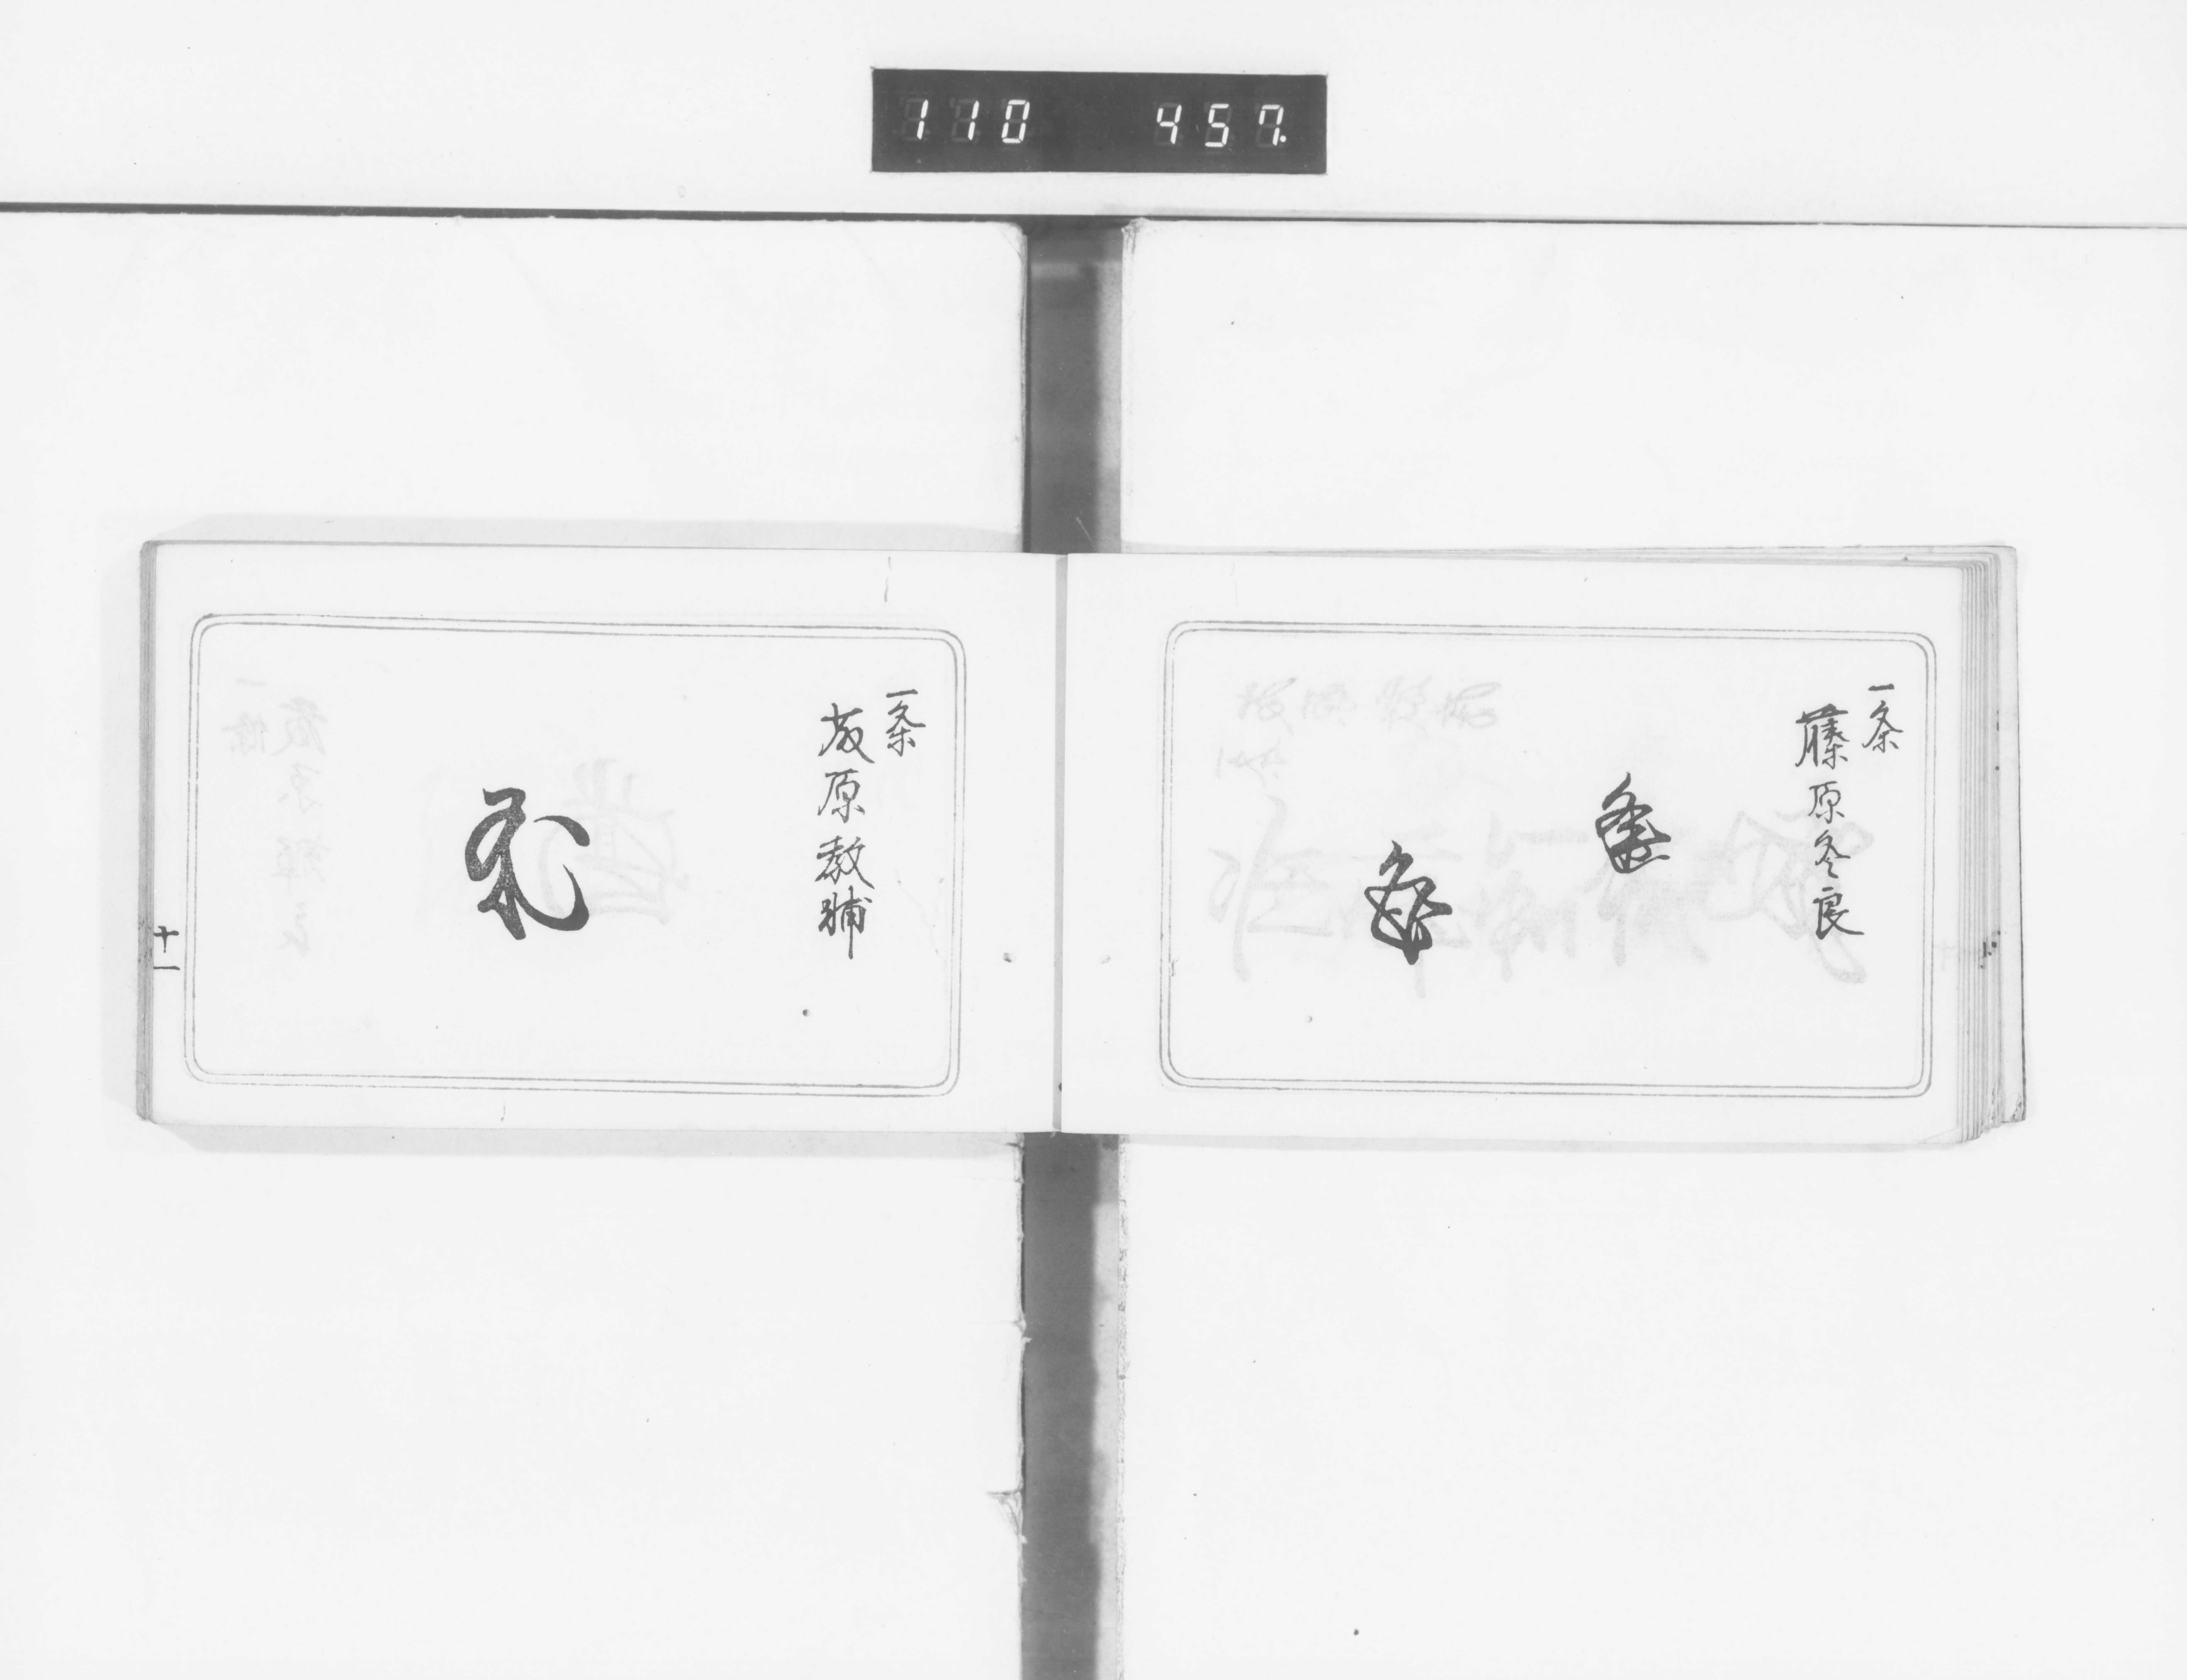 110 457.
一条
藤原冬良
一条
藤原教輔
十一